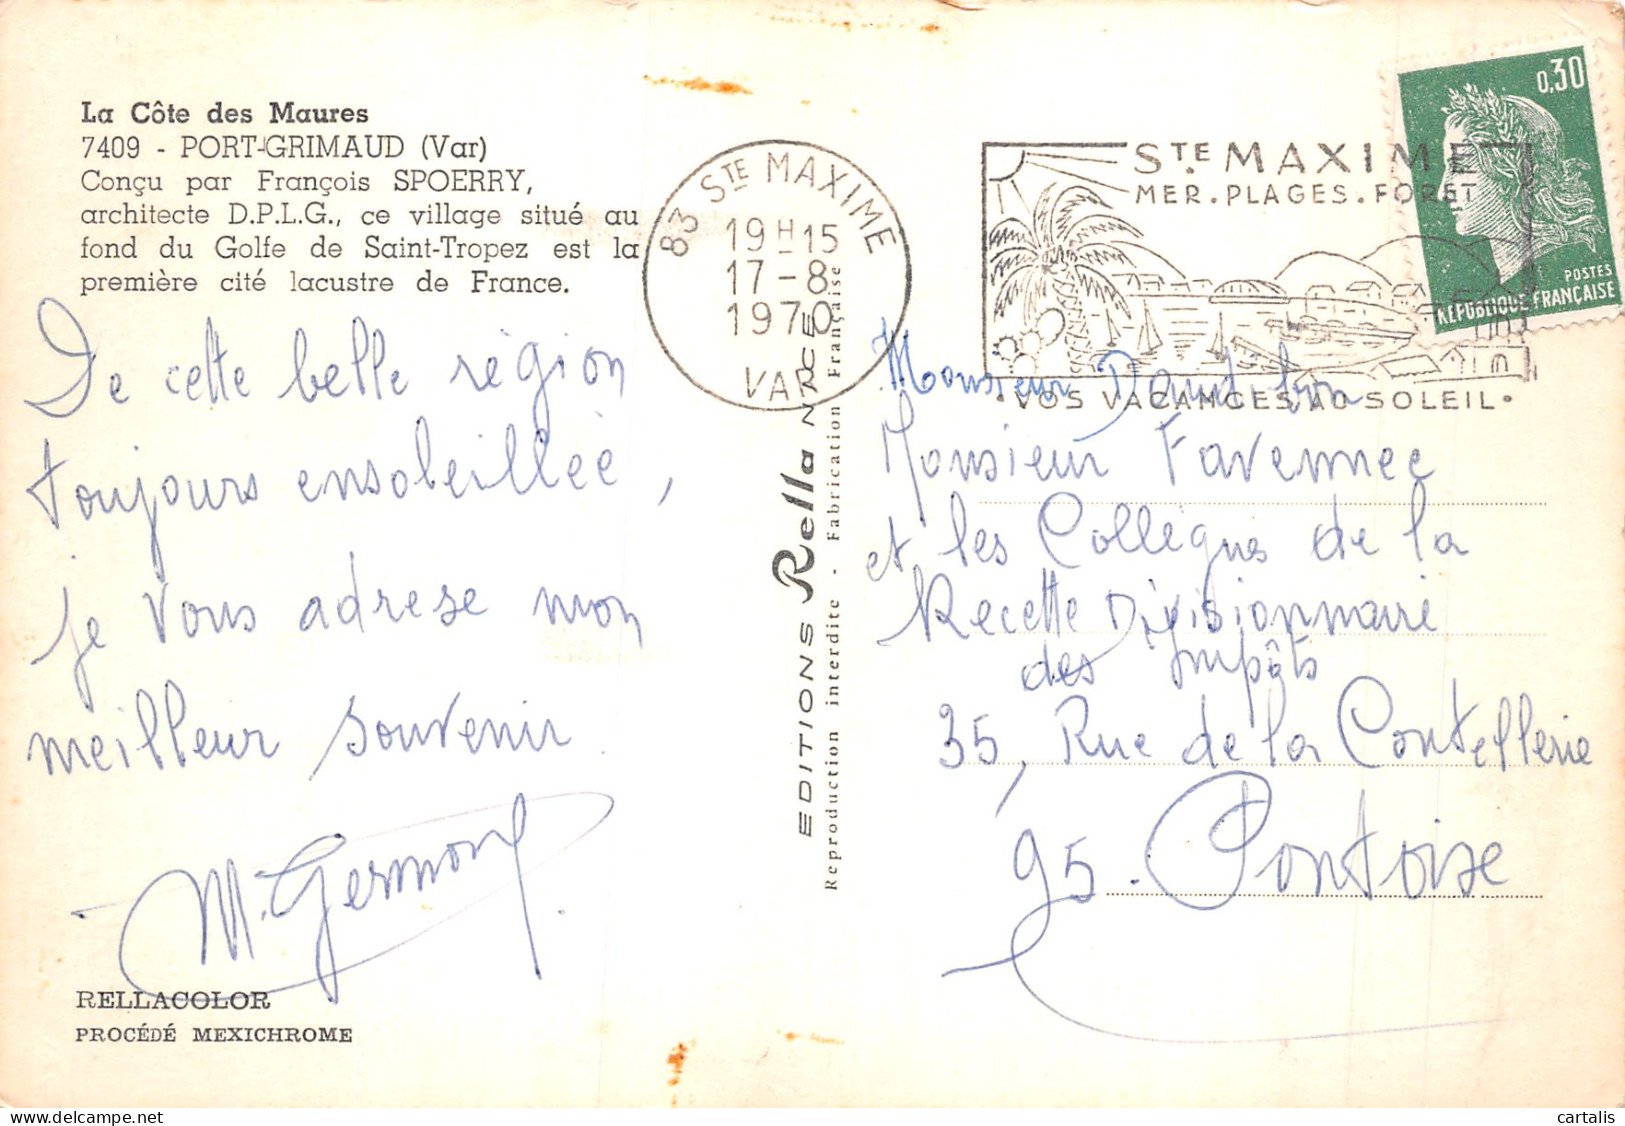 La Côte des Maures
7409 - PORT-GRIMAUD (Var)
Conçu par François SPOERRY,
architecte D.P.L.G., ce village situé au
fond du Golfe de Saint-Tropez est la
première cité lacustre de France.
De cette belle région
toujours ensoleillée,
je vous adrese mon
meilleur souvenir.
M. Germond
RELLACOLOR
PROCÉDÉ MEXICHROME
83 STE MAXIME
19H15
17-8
1970
VAR
EDITIONS Rella NICE
Reproduction interdite - Fabrication Française
STE MAXIME
MER.PLAGES.FORET
•VOS VACANCES AU SOLEIL•
0,30
POSTES
REPUBLIQUE FRANÇAISE
Monsieur
Monsieur Favennec
et les Collègues de la
Recette Divisionnaire
des Impôts
35, Rue de la Coutellerie
95. Pontoise
cartalis